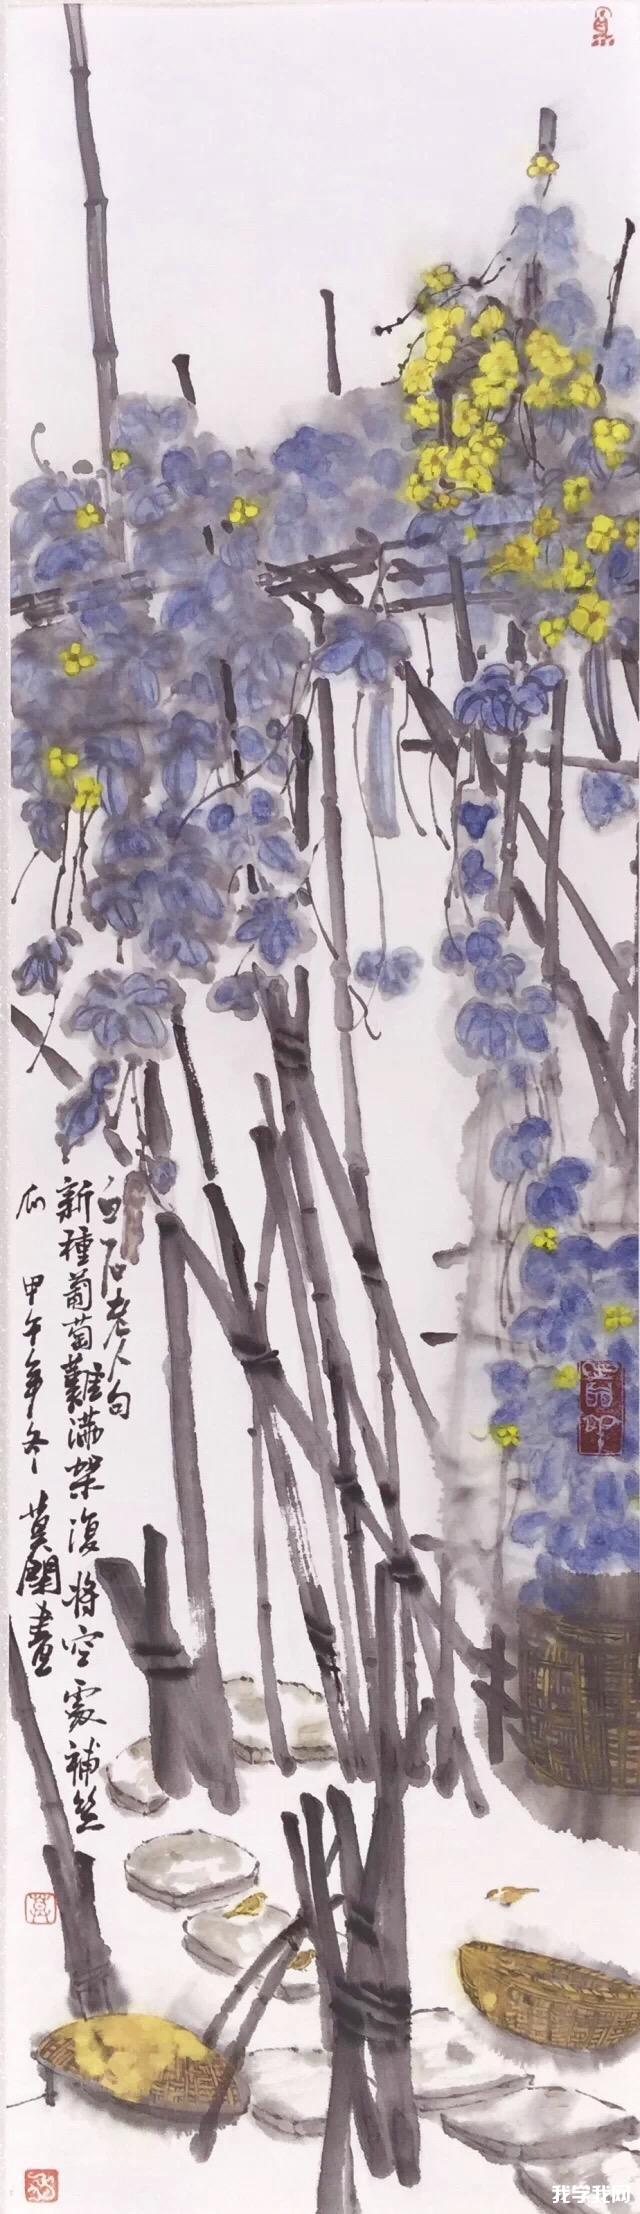 白石老人句
新種葡萄難满架復將空處補絲
瓜
甲午年冬莫關畫
我学我网